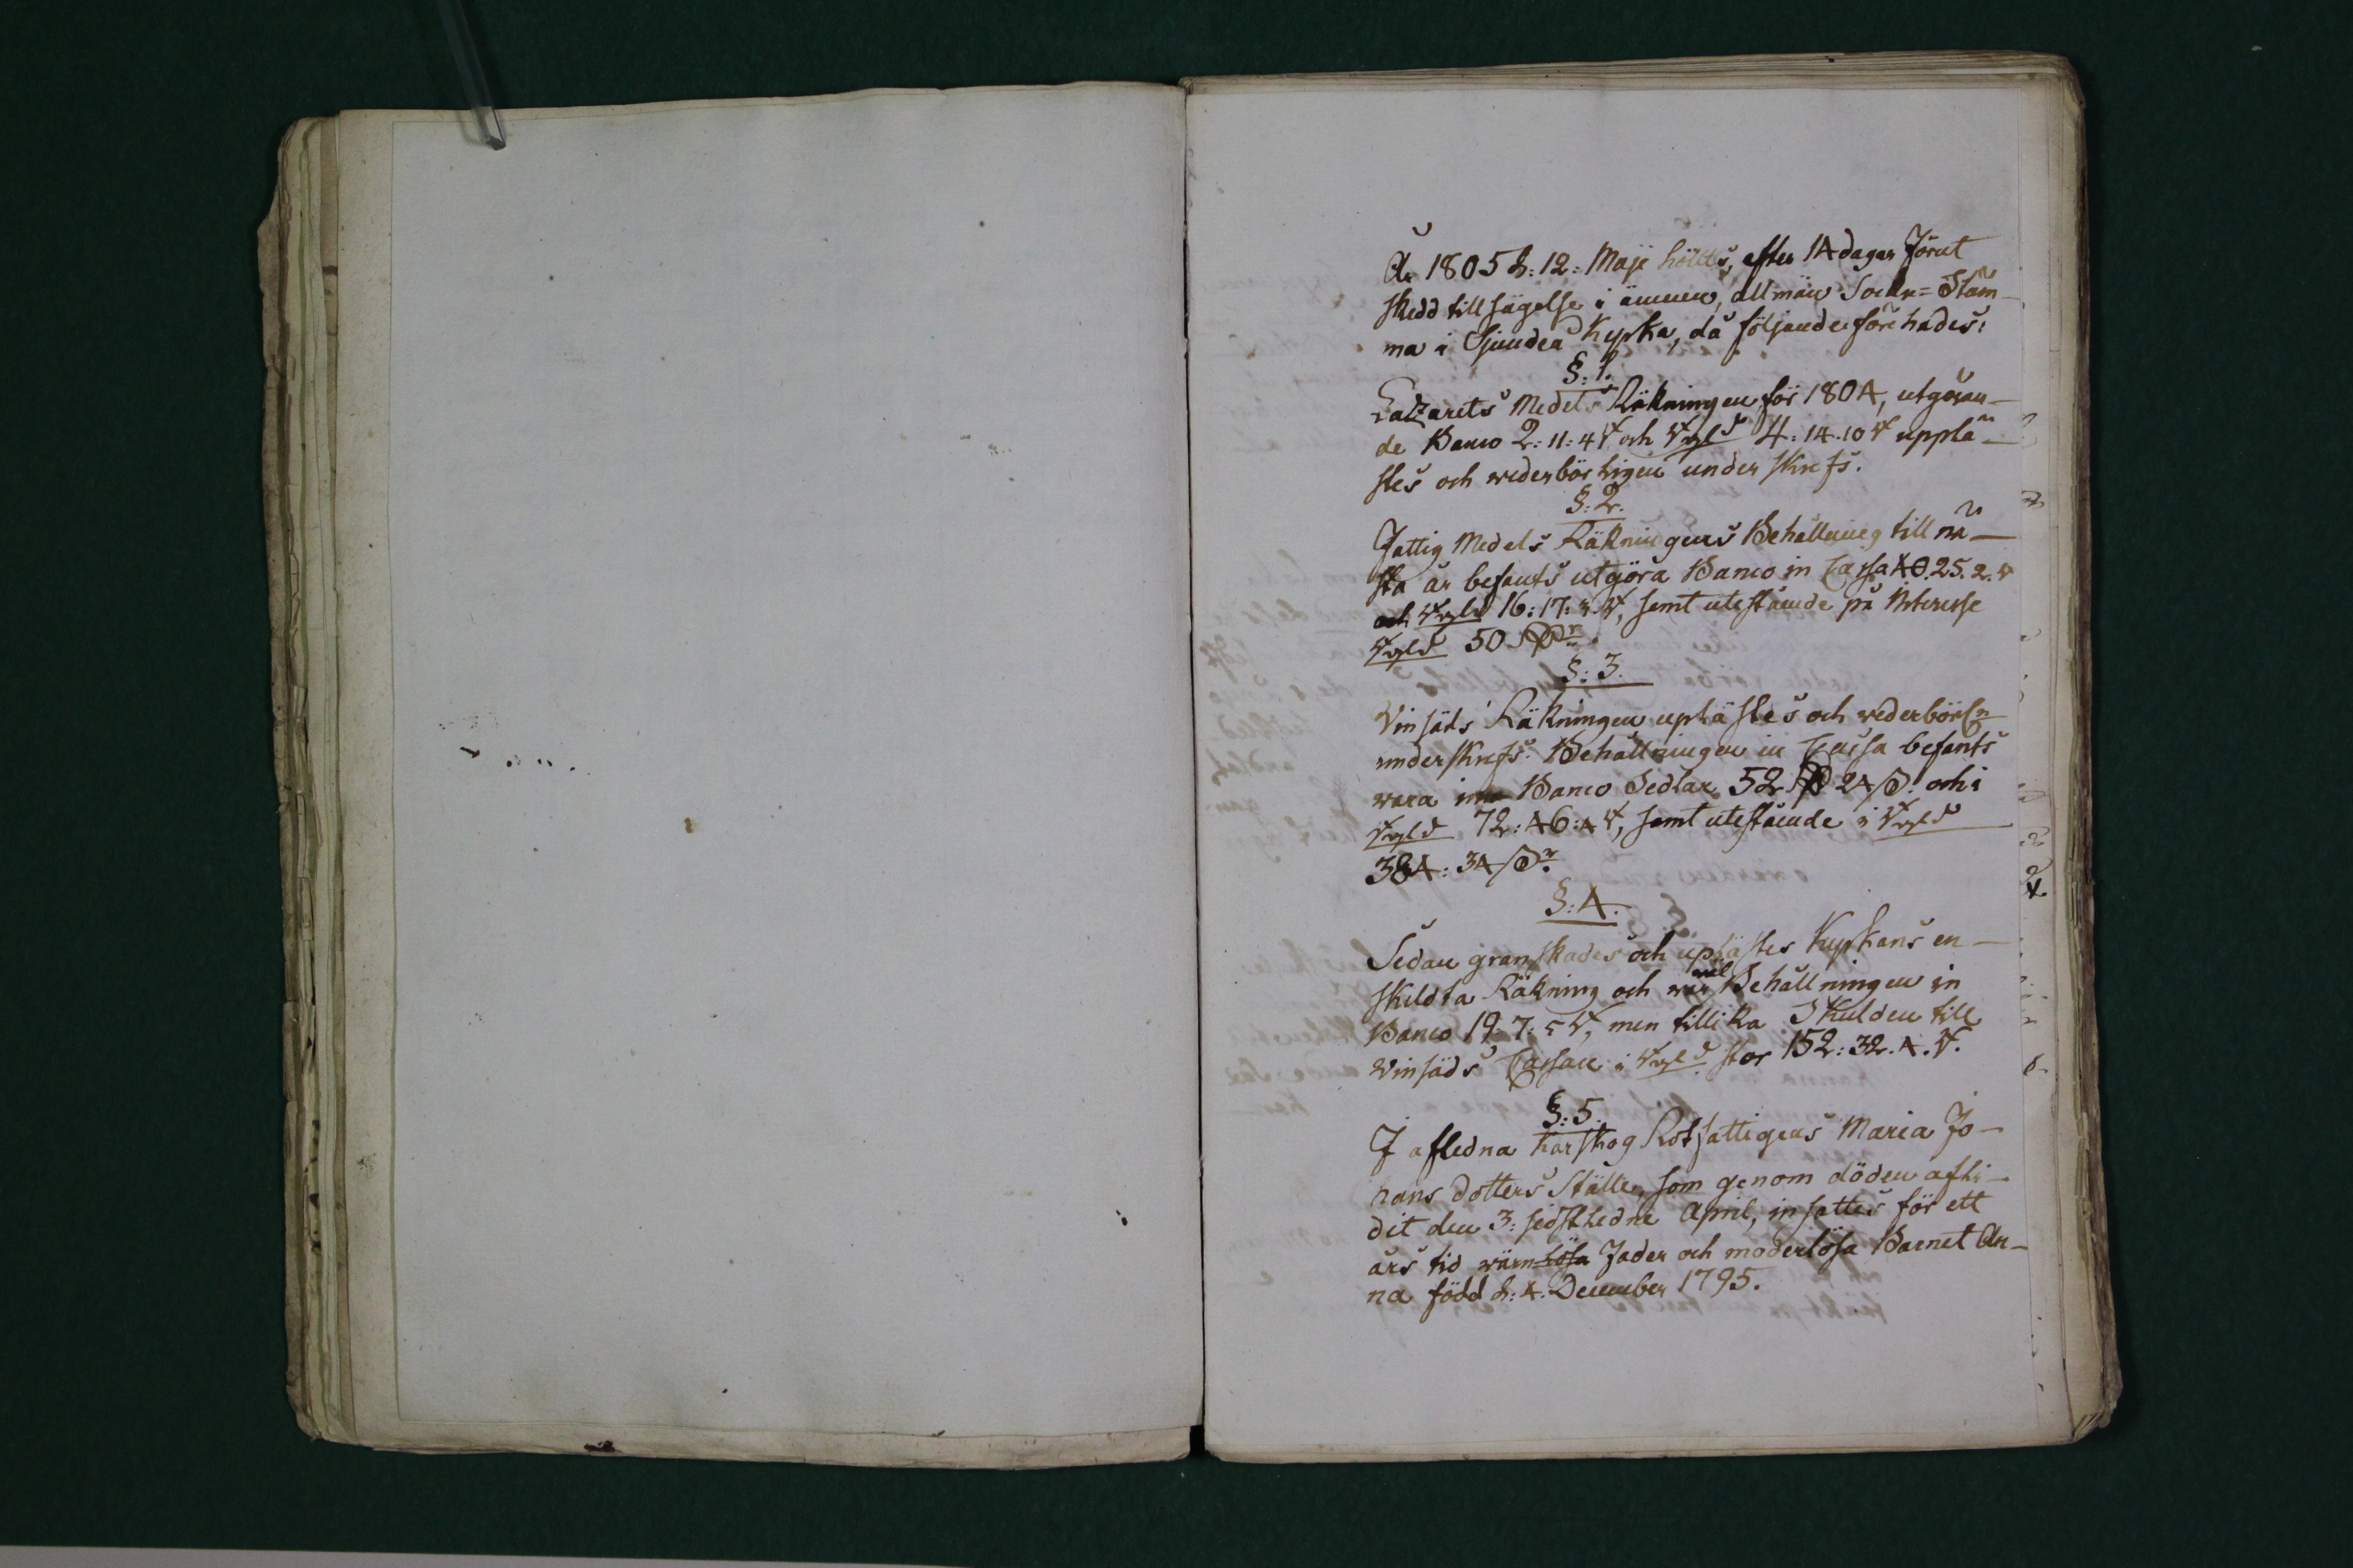 År 1805 d: 12: Maji hölts, efter 14 dagar förut
skedd tillsägelse i ämnen, allmän Sockn= Stäm-
ma i Sjundeå Kyrka, då följande förehades:
§: 1.
Lazarets Medels Räkningen för 1804, utgöran-
de Banco 2: 11: 4 och Rgld 4: 14. 10 upplä-
stes och wederbörligen underskrefs.
§: 2.
Fattig Medels Räkningens Behållning till nä-
sta år befants utgöra Banco in Cassa 40. 25. 2.
och Rgld 16: 17: 5, samt utestående på Interesse
Rgld 50 Rdr.
§: 3.
Vinsäds Räkningen uplästes och wederbörln
underskrefs. Behållningen in Cassa befants
wara i Banco Sedlar 52 Rd 24 ß. och i
Rgld 72: 46: 4, samt utestående i Rgld
384: 34 ßr.
§: 4.
Sedan granskades och uplästes Kyrkans en-
skildta Räkning och war wäl Behållningen in
Banco 19: 7: 5, men tillika Skulden till
Vinsäds Cassan i Rgld stor 152: 32. 4.
§: 5.
I afledna Harskog Rotfattigens Maria Jo-
hans dotters Ställe, som genom döden afli-
dit den 3: sidstledne April, insattes för ett
års tid wärnlösa Fader och moderlösa Barnet An-
na född d: 4. December 1795.